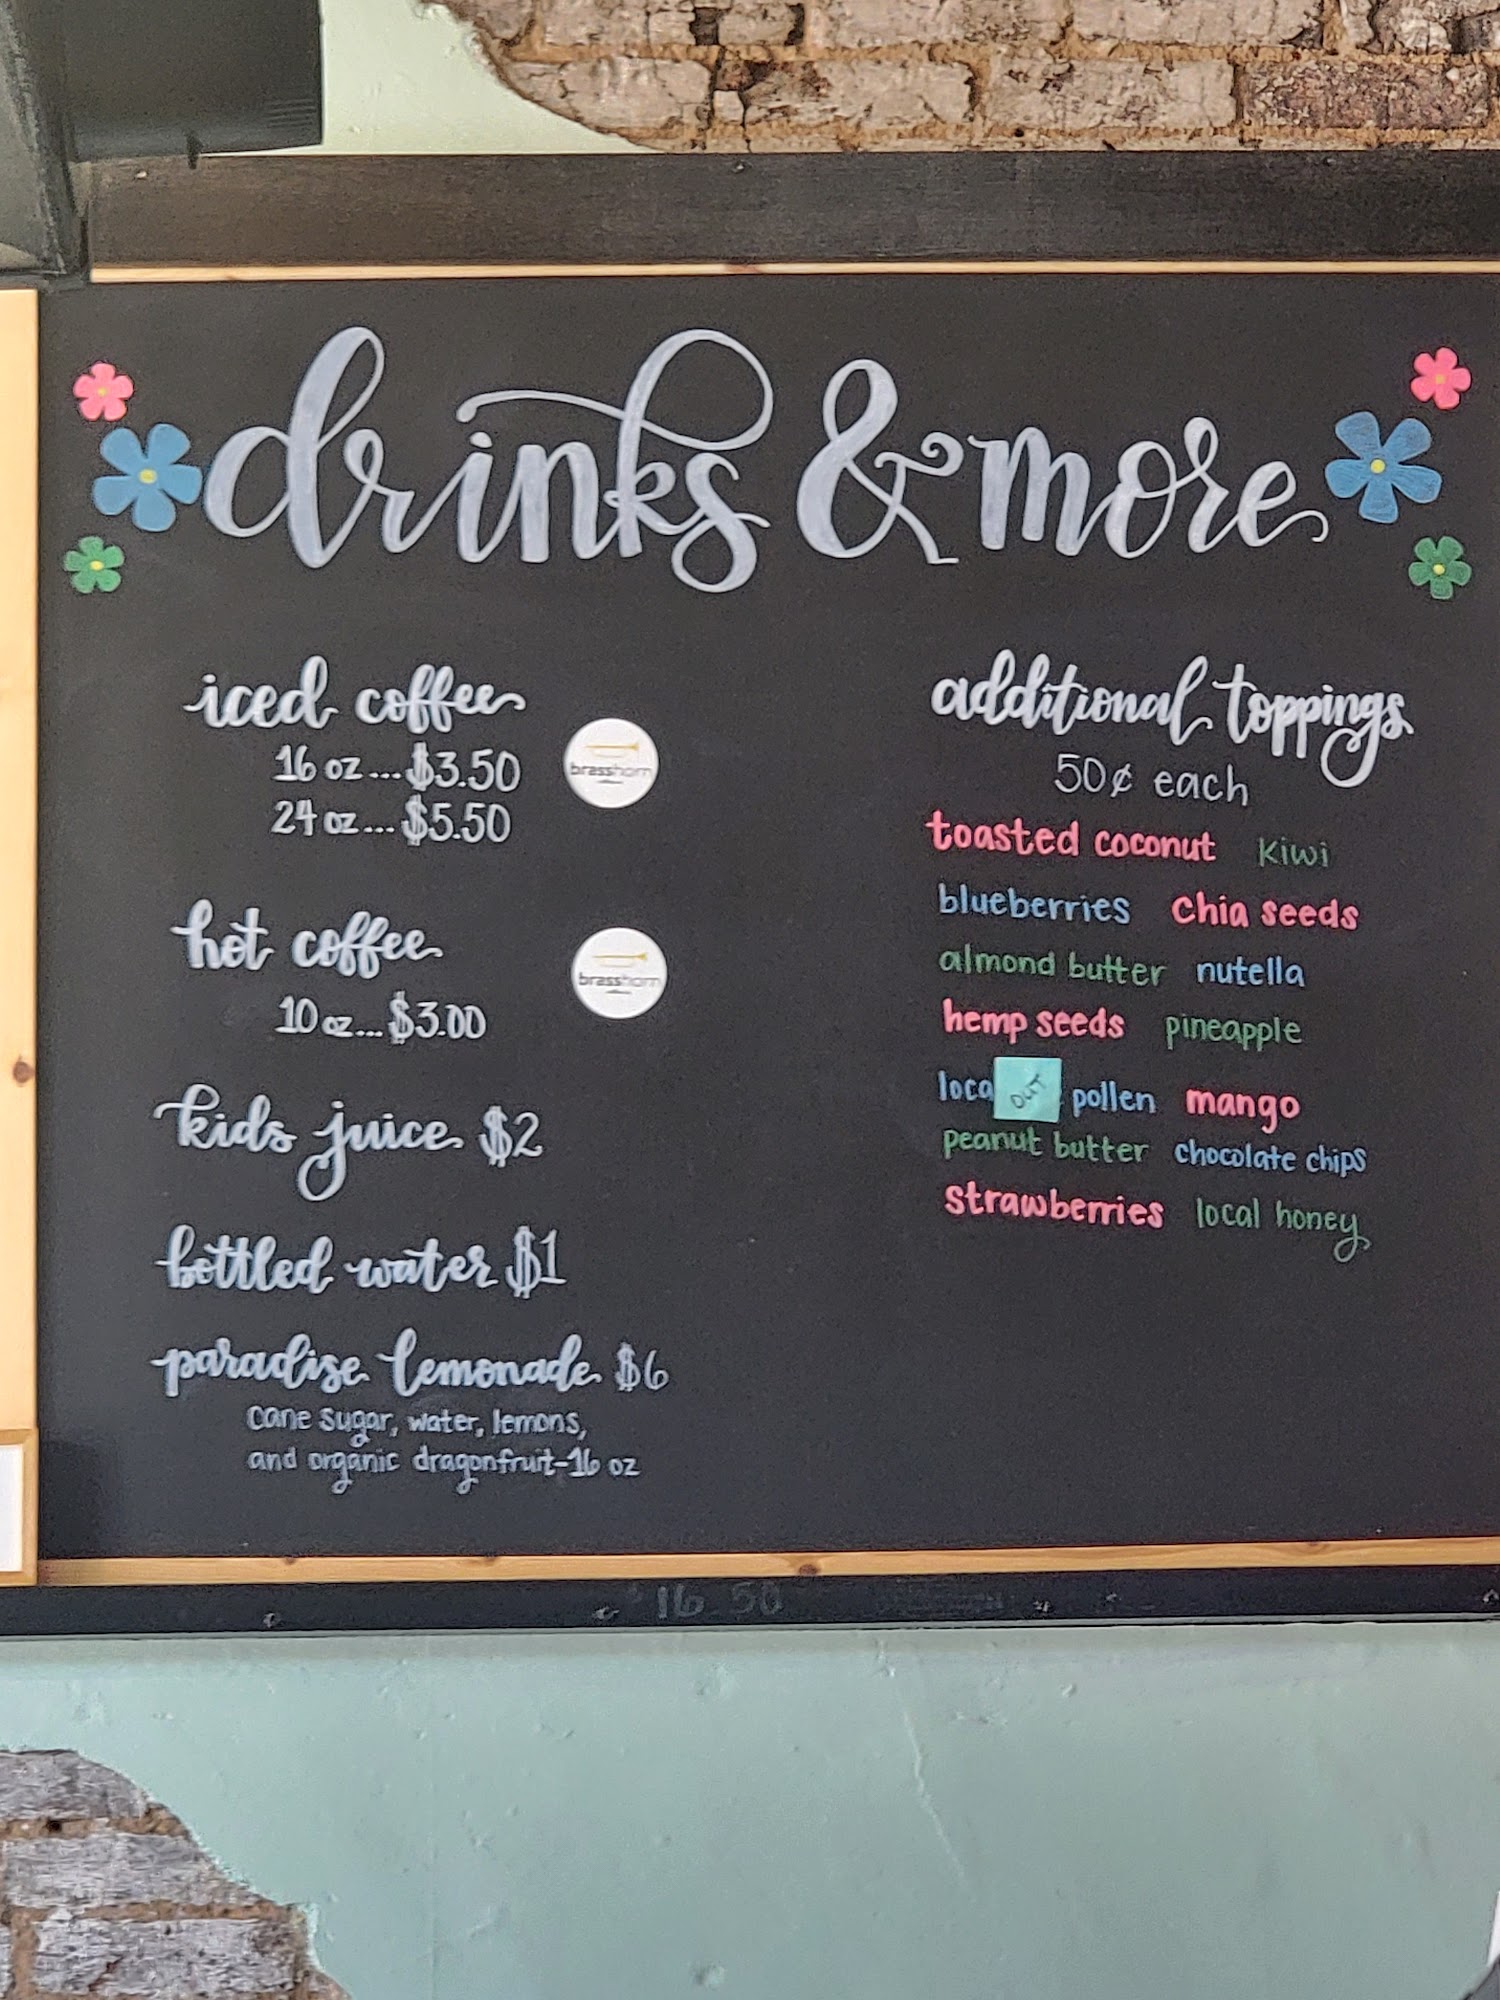 drinks & more
iced coffee
16 oz...$3.50
24 oz...$5.50
brasshorn
hot coffee
10 oz...$3.00
brasshorn
kids juice $2
bottled water $1
paradise lemonade $6
cane sugar, water, lemons,
and organic dragonfruit-16 oz
additional toppings
50¢ each
toasted coconut kiwi
blueberries chia seeds
almond butter nutella
hemp seeds pineapple
loca OUT pollen mango
peanut butter chocolate chips
strawberries local honey
16 50